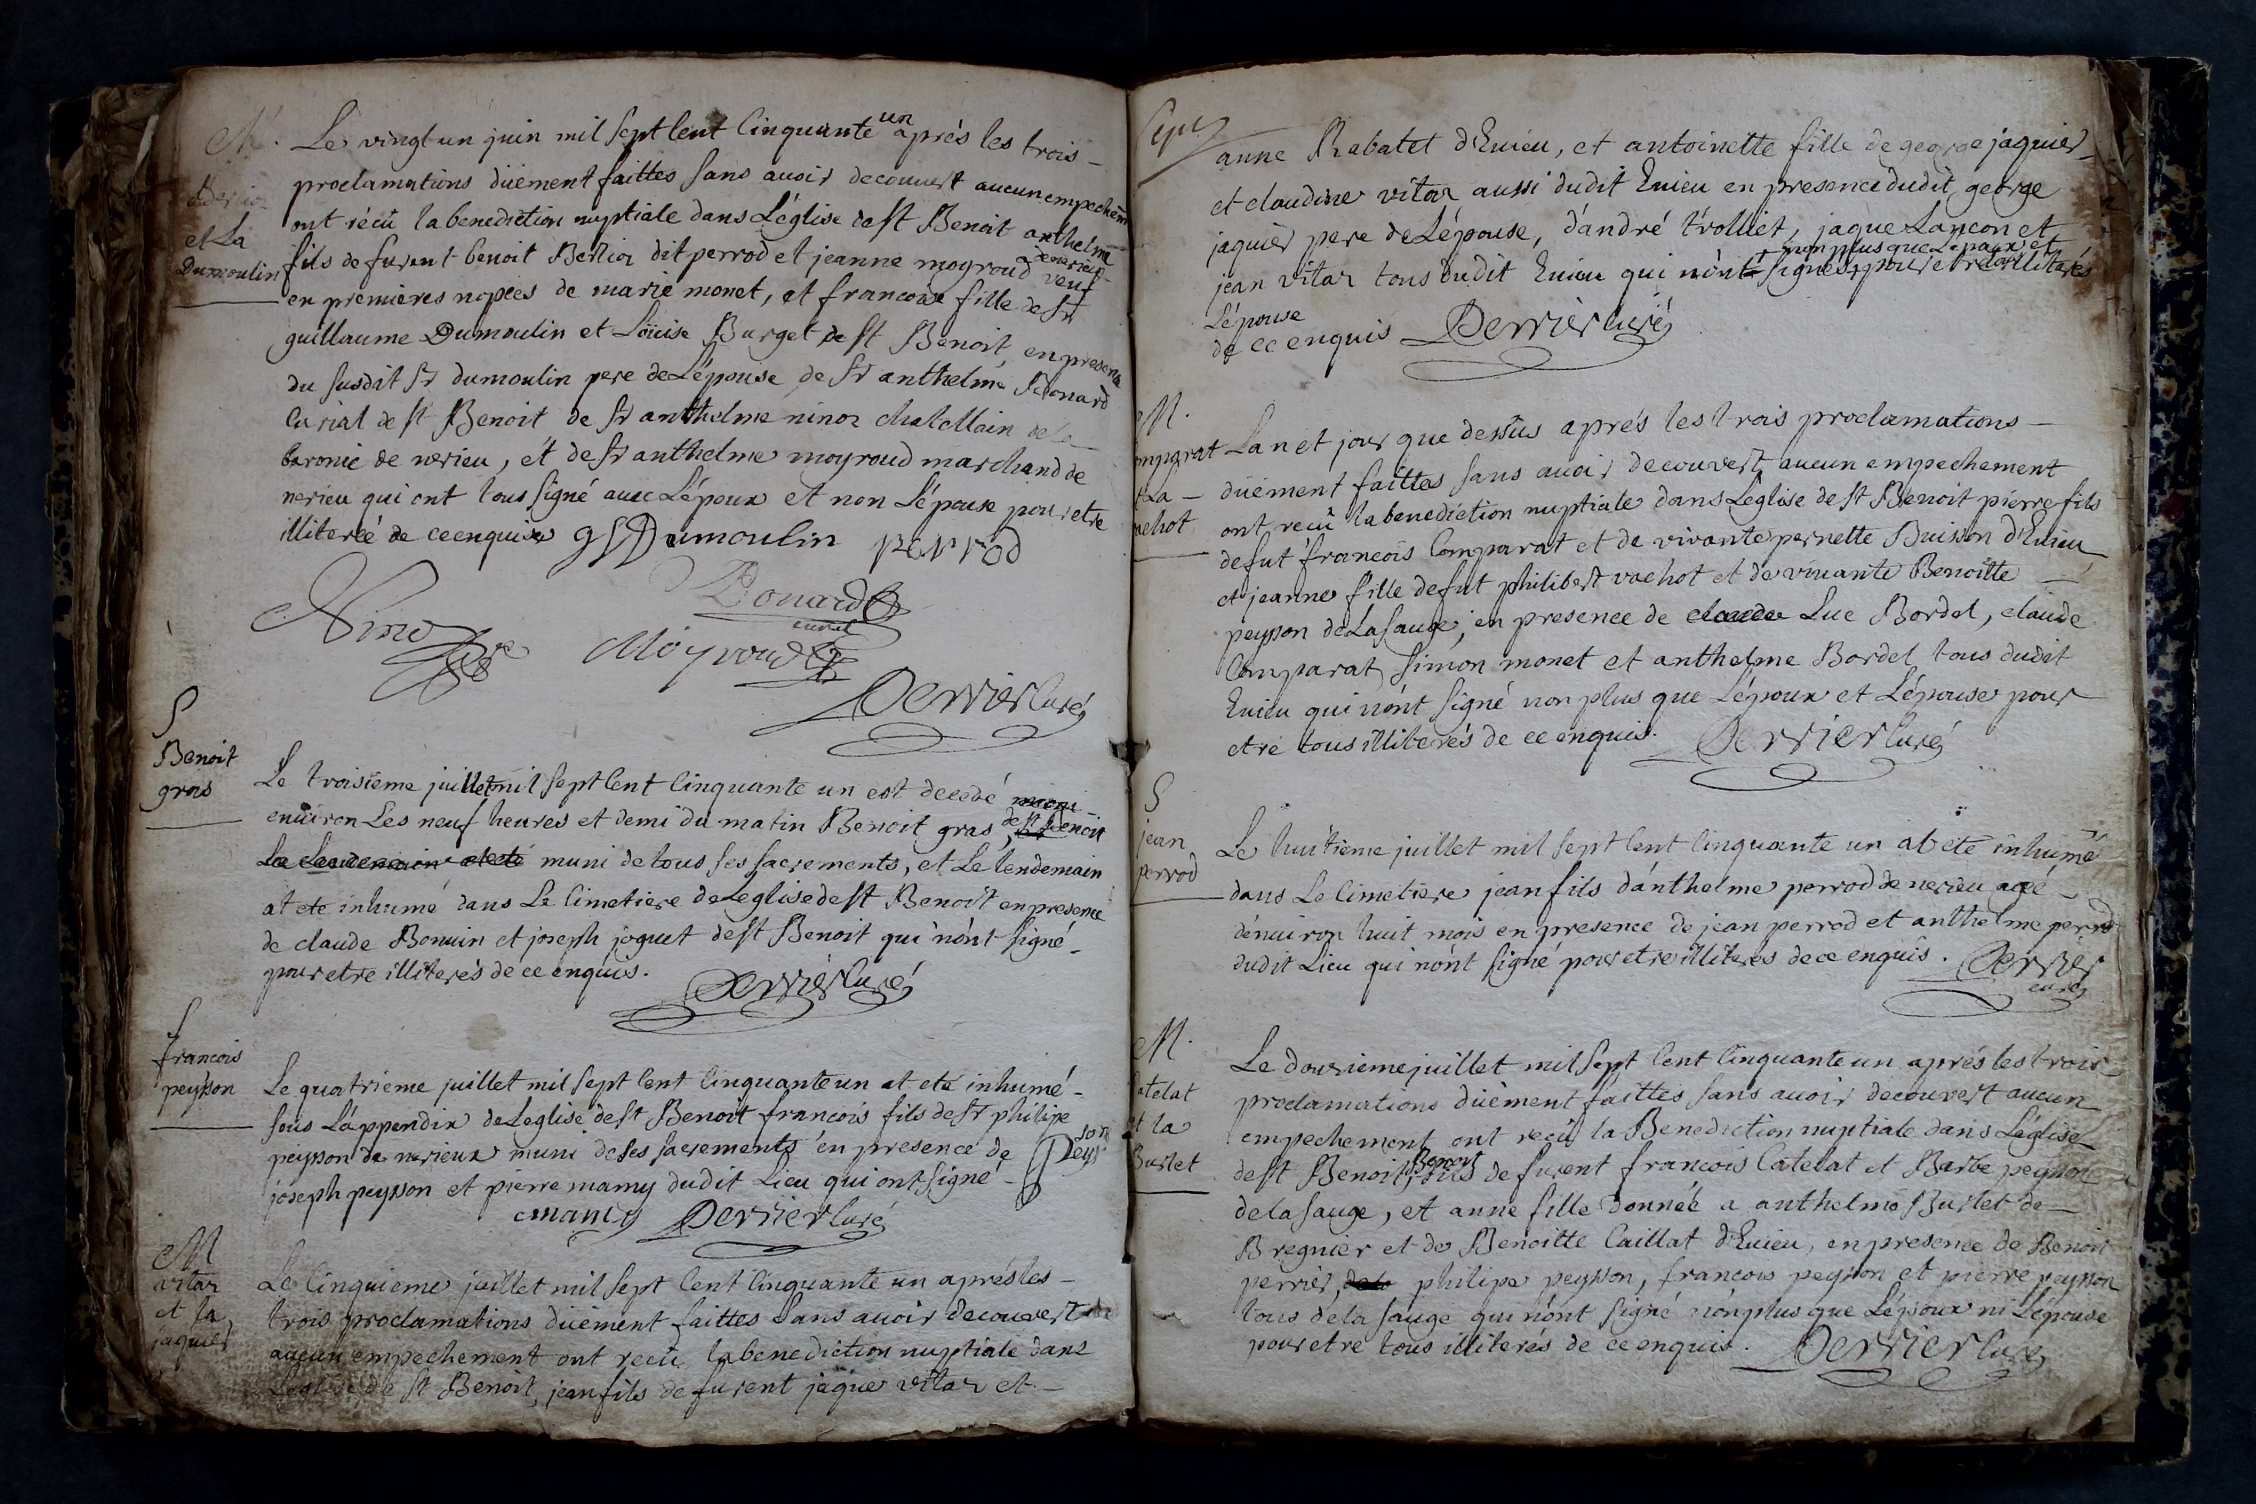 M.
et La
Dumoulin
Le vingt un juin mil sept Cent Cinquante un aprés les trois –
proclamations düement faittes sans auoir decouuert aucun empechem
ont récû la benediction nuptiale dans L'église de st Benoit anthelme
fils de furent benoit Berlioz dit perrod et jeanne moyroud de nerieu veuf
en premieres nopces de marie monet, et francoise fille de Sr
guillaume Dumoulin et Loüise Burget de st Benoit, en presence
du susdit Sr dumoulin pere de L'épouse de Sr anthelme Donard
Curial de st Benoit de Sr anthelme ninoz chatellain de la
baronie de nerieu, ét de Sr anthelme moyroud marchand de
nerieu qui ont tous signé auec L'époux et non L'épouse pour etre
illiteréé de ce enquise g Dumoulin perrod
Donard
curial
Ninoz
Moyroud
Derrier Curé
S
Benoit
gras
Le troisieme juillet mil sept Cent Cinquante un est decedé
enuiron Les neuf heures et demi du matin Benoit gras, de st Benoit
Le Lendemain a eté muni de tous ses sacrements, et Le lendemain
at ete inhumé dans Le Cimetiere de Leglise de st Benoit en presence
de claude Bonuin et joseph joguet de st Benoit qui n'ónt signé –
pour etre illiterés de ce enquis.
Derrier Curé
S
francois
peysson
Le quatrieme juillet mil sept Cent Cinquante un at eté inhumé –
sous L'appendix de Leglise de st Benoit francois fils de Sr philipe
peysson de nerieux muni de ses sacrements en presence de
joseph peysson et pierre mamy dudit Lieu qui ont signé – Peysson
mamy Derrier Curé
M
vitoz
et la
jaquier
Le Cinquieme juillet mil sept Cent Cinquante un aprés les –
trois proclamations düement faittes sans auoir decouuert
aucun empechement ont recû la benediction nuptiale dans
Leglise de st Benoit, jean fils de furent jaque vitoz et –
Sept
anne Rabatet d'Euieu, et antoinette fille de george jaquier
et claudine vitoz aussi dudit Euieu en presence dudit george
jaquier pere de L'épouse, d'andré trolliet, jaque Lancon et
jean vitoz tous dudit Euieu qui n'ónt signés non plus que L'epoux et L'épouse pour etre tous illiterés
de ce enquis Derrier Curé
M.
Comparat
et La –
vachot
L'an et jour que dessûs aprés les trois proclamations –
düement faittes sans auoir decouvert aucun empechement
ont recû la benediction nuptiale dans L'eglise de st Benoit pierre fils
de fut francois Comparat et de viuante pernette Buisson d'Euieu
et jeanne fille de fut philibert vachot et de viuante Benoitte –
peysson de La Sauge, en presence de claude Luc Bordel, claude
Comparat, simon monet et anthelme Bordel tous dudit
Euieu qui n'ónt signé non plus que L'époux et L'épouse pour
etre tous illiterés de ce enquis. Derrier Curé
S
jean
perrod
Le huitieme juillet mil sept Cent Cinquante un at eté inhumé
dans Le Cimetiere jean fils d'anthelme perrod de nerieu agé –
d'enuiron huit mois en presence de jean perrod et anthelme perrod
dudit Lieu qui n'ont signé pour etre illiterés de ce enquis. Derrier
curé
M.
Catelat
et la
Burlet
Le douzieme juillet mil sept Cent Cinquante un aprés les trois
proclamations düement faittes sans auoir decouvert aucun
empechement ont recû la Benediction nuptiale dans L'eglise
de st Benoit, Benoit fils de furent francois Catelat et Barbe peysson –
de la Sauge, et anne fille donnée a anthelme Burlet de –
Bregnier et de Benoitte Caillat d'Euieu, en presence de Benoit
perrier, de la philipe peysson, francois peysson et pierre peysson
tous de la Sauge qui n'ónt signé nonplus que L'époux ni L'épouse
pour etre tous illiterés de ce enquis. Derrier Curé